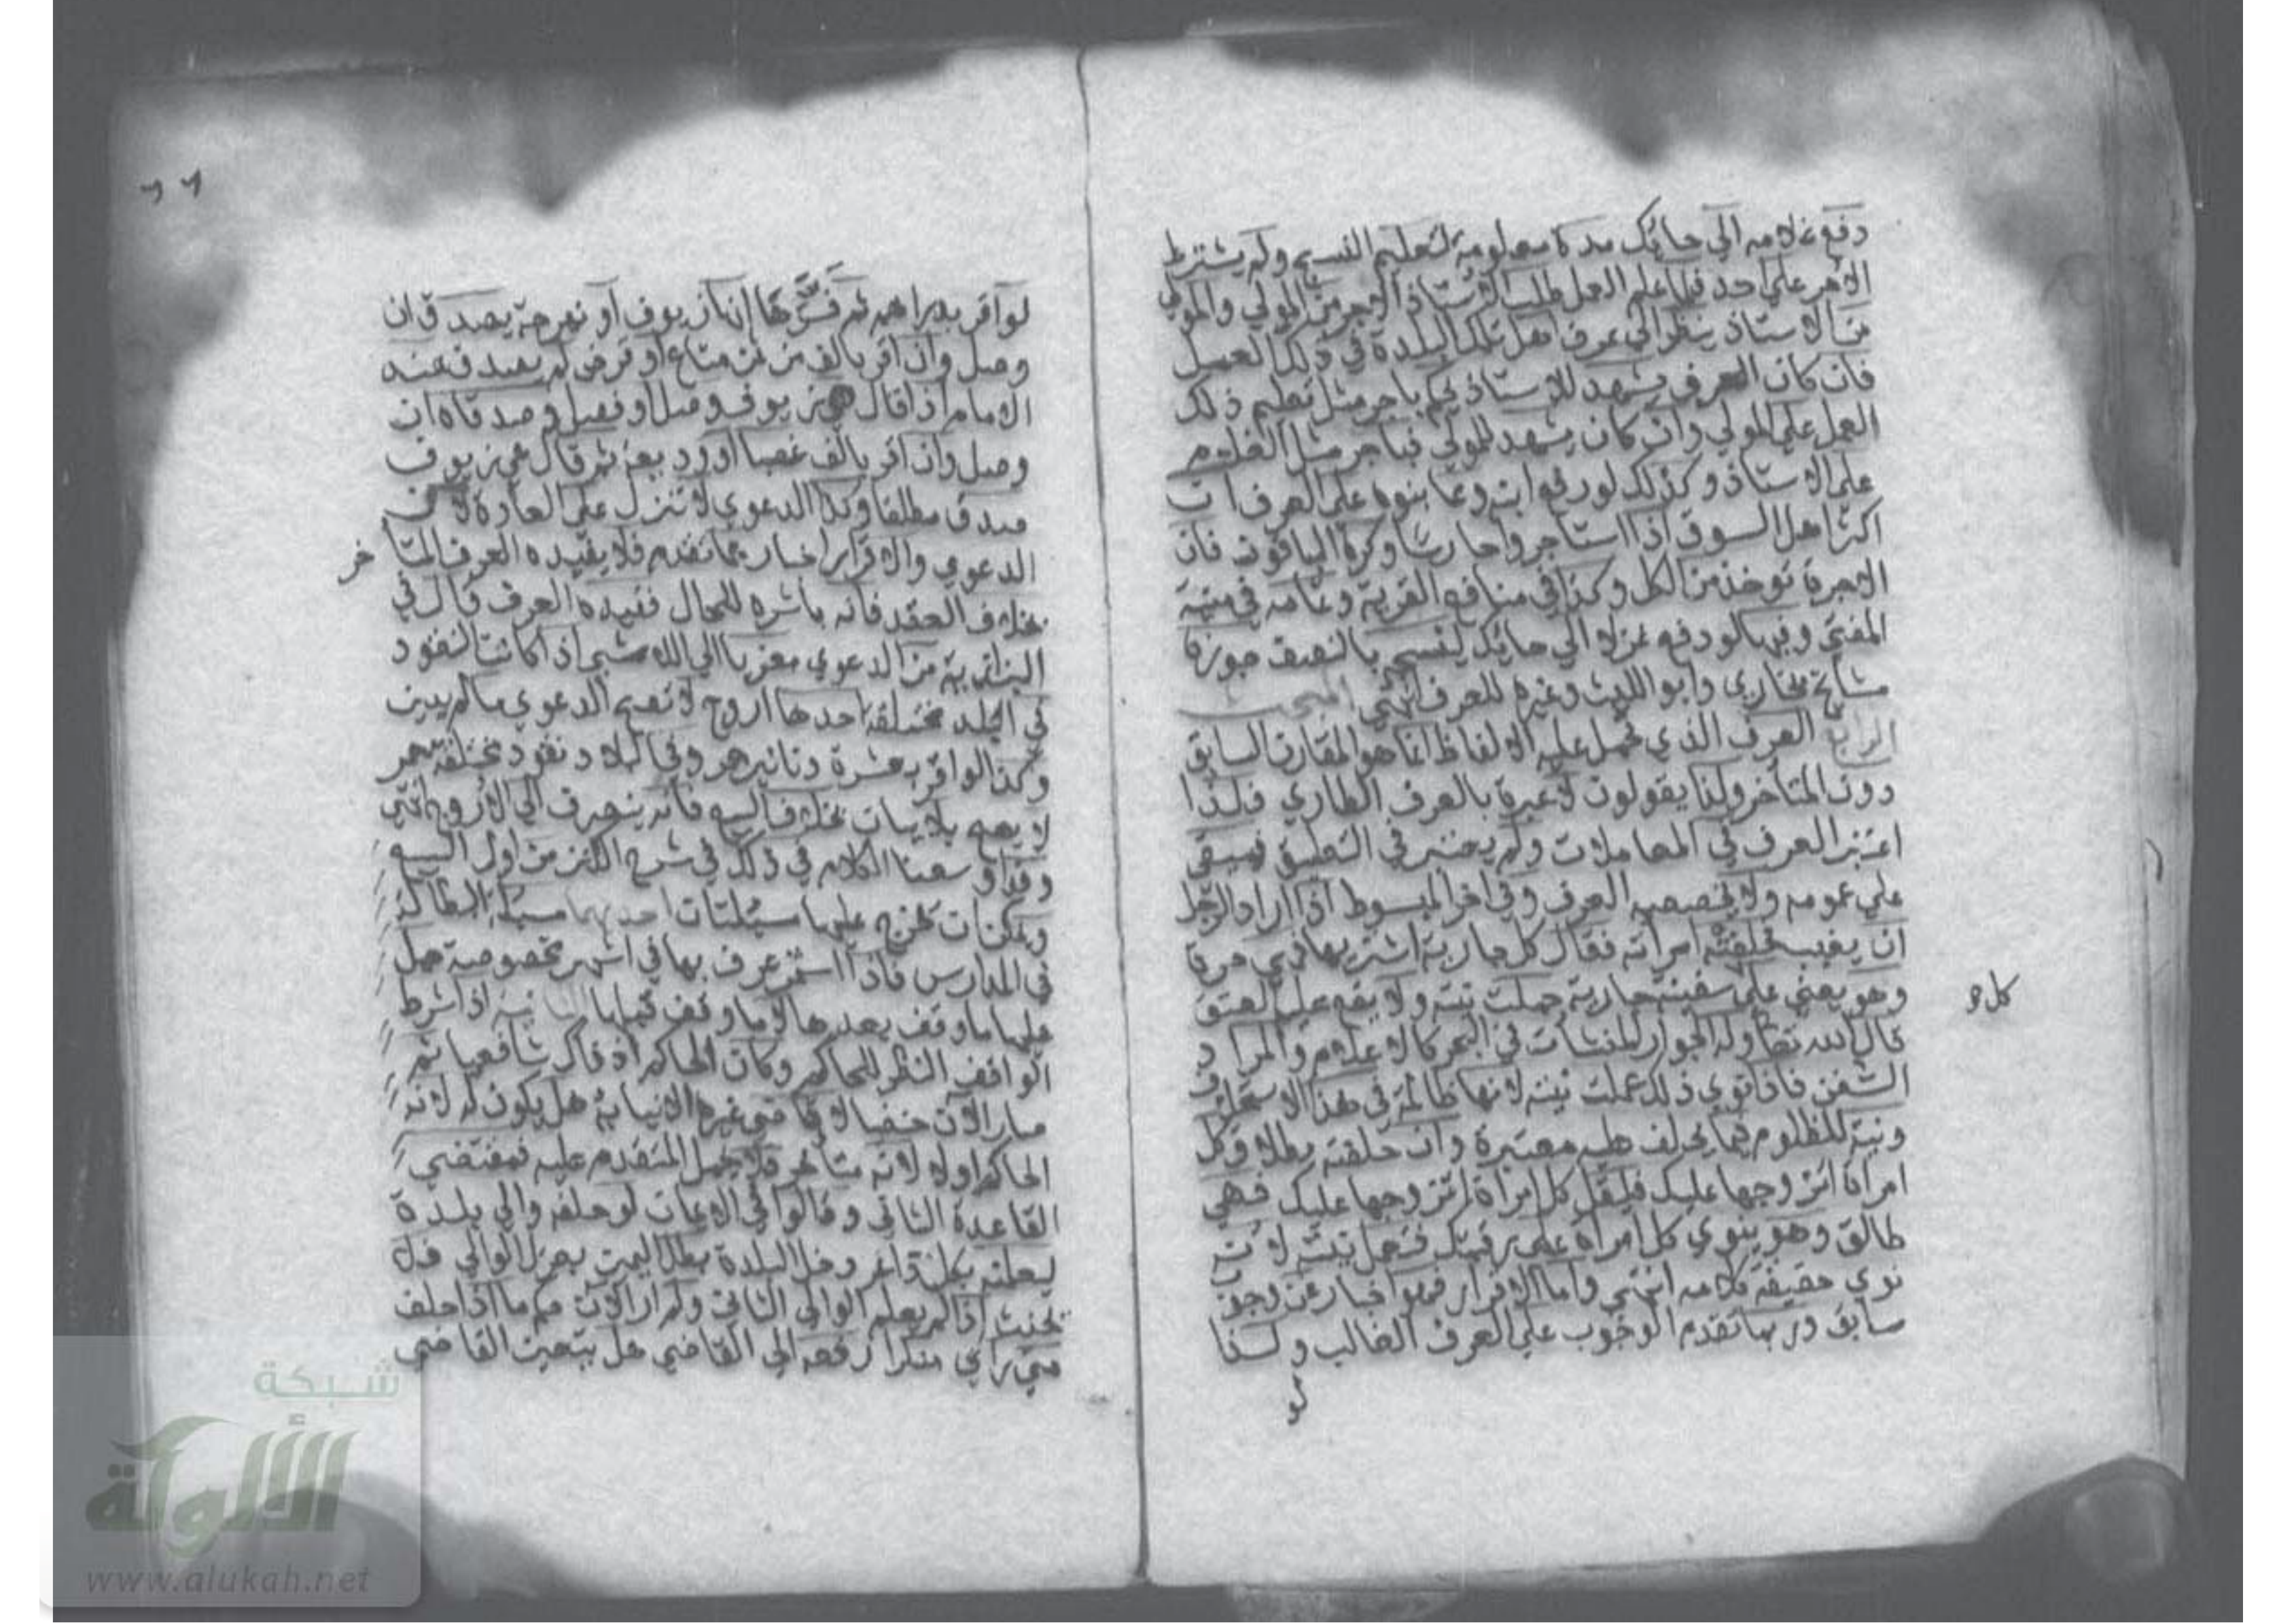 دفع غلامه الي حايك مدة معلومة لتعليم النسج ولم يشترط
الاجر علي احد فلما علم العمل طلب الاستاذ الاجر من المولي والمولي
من الاستاذ ينظر الي عرف اهل تلك البلدة في ذلك العمل
فان كان العرف يشهد للاستاذ يحكم باجر مثل تعليم ذلك
العمل علي المولي وان كان يشهد للمولي فباجر مثل الغلام
علي الاستاذ وكذلك لو دفع ابنه ومما بنوه علي العرف ان
اكثر اهل السوق اذا استاجروا حارسا وكره الباقون فان
الاجرة توخذ من الكل وكذا في منافع القرية وتمامه في منية
المفتي وفيها لو دفع غزلا الي حايك لينسج بالنصف جوزها
مشايخ بخاري وابو الليث وغيره للعرف انتهي المبحث
الرابع العرف الذي تحمل عليه الالفاظ انما هو المقارن السابق
دون المتاخر ولذا يقولون لا عبرة بالعرف الطاري فلذا
اعتبر العرف في المعاملات ولم يعتبر في التعليق فيبقي
علي عمومه ولا يخصصه العرف وفي اخر المبسوط اذا اراد الرجل
ان يغيب فحلفته امراته فقال كل جارية اشتريها فهي حرة
كل و
وهو يعني علي سفينة جارية عملت نيته ولا يقع علي العتق
قال الله تعا وله الجوار المنشات في البحر كالاعلام والمراد
السفن فاذا نوي ذلك عملت نيته لانها ظالمة في هذا الاستحلاف
ونية المظلوم فيما يحلف عليه معتبرة وان حلفته بطلاق كل
امراة اتزوجها عليك فليقل كل امراة اتزوجها عليك فهي
طالق وهو ينوي كل امراة علي رقبتك فتعمل نيته لانه
نوي حقيقة كلامه انتهي واما الاقرار فهو اخبار عن وجوب
سابق وربما تقدم الوجوب علي العرف الغالب ولهذا
لو
٦٦
لو اقر بدراهم ثم فسرها انها زيوف او نبهرجة يصدق ان
وصل وان اقر بالف من ثمن متاع او قرض لم يصدق عند
الامام اذا قال هي زيوف وصل او فصل وصدقاه ان
وصل وان اقر بالف غصبا او وديعة ثم قال هي زيوف
صدق مطلقا وكذا الدعوي لا تنزل علي العادة لان
الدعوي والاقرار اخبار بما تقدم فلا يقيده العرف المتا
خر
بخلاف العقد فانه باشره للحال فقيده العرف قال في
البزازية من الدعوي معزيا الي اللامشي اذا كانت النقود
في البلد مختلفة احدها اروج لا تصح الدعوي مالم يبين
وكذا لو اقر بعشرة دنانير حمر وفي البلاد نقود مختلفة حمر
لا يصح بلا بيان بخلاف البيع فانه ينصرف الي الاروج انتهي
وقد اوسعنا الكلام في ذلك في شرح الكنز من اول البيع
ويمكن ان تخرج عليها مسئلتان احديهما مسئلة البطالة
في المدارس فاذا استمر عرف بها في اشهر مخصوصة حمل
عليها ما وقف بعدها لا ما وقف قبلها الثانية اذا شرط
الواقف النظر للحاكم وكان الحاكم اذ ذاك شافعيا ثم
صار الان حنفيا لا قاضي غيره الا نيابة هل يكون له لانه
الحاكم او لا لانه متاخر فلا يحمل المتقدم عليه فمقتضي
القاعدة الثاني وقالوا في الايمان لو حلفه والي بلدة
ليعلمنه بكل داعر دخل البلدة بطل اليمين بعزل الوالي فلا
يحنث اذا لم يعلم الوالي الثاني ولم ار الان حكم ما اذا حلف
متي راي منكرا رفعه الي القاضي هل يتعين القاضي
شبكة
الألوكة
www.alukah.net